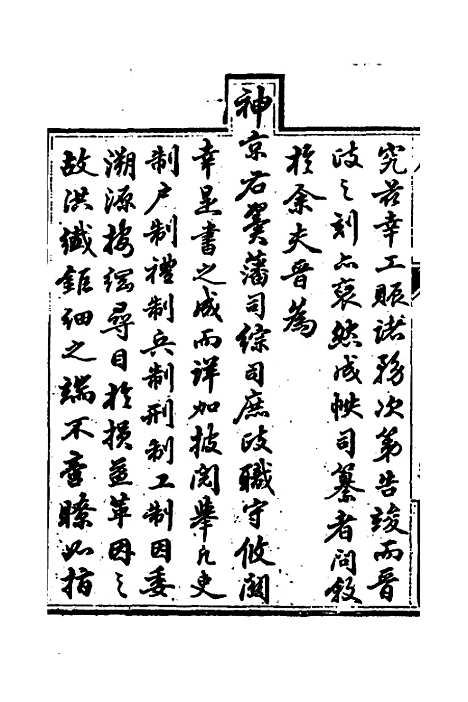 究茲幸工賑諸務次第告竣而晉
政之刻亦裒然成帙司纂者問敘
於余夫晉為
神京右翼藩司綜司庶政職守攸關
幸是書之成而詳加披閱舉凡吏
制戶制禮制兵制刑制工制因委
溯源按綱尋目於損益革因之
故洪纖鉅細之端不啻瞭如指